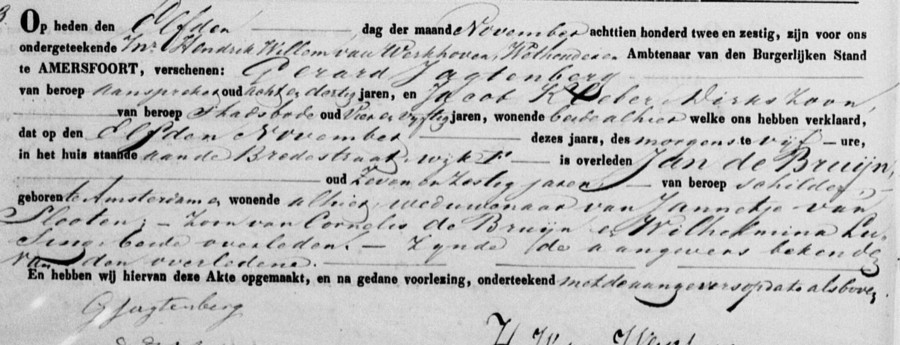 Op heden den Elfden dag der maand November achttien honderd twee en zestig, zijn voor ons
ondergeteekende Hendrik Willem van Werkhoven, Wethouder en Ambtenaar van den Burgerlijken Stand
te AMERSFOORT, verschenen: Gerard Jagtenberg
van beroep aanspreker oud acht en dertig jaren, en Jacob Kleber, Dirkszoon,
van beroep Stadsbode oud Vier en vyftig jaren, wonende beide alhier welke ons hebben verklaard,
dat op den Elfden November dezes jaars, des morgens te vijf ure,
in het huis staande aan de Bredestraat, wijk is overleden Jan de Bruijn,
oud Zeven en Zestig jaren, van beroep schilder,
geboren te Amsterdam en wonende alhier, weduwenaar van Jannetje van
Slooten; – Zoon van Cornelis de Bruijn en Wilhelmina
beide overleden. – Zynde de aangevers bekenden
van den overledene.
En hebben wij hiervan deze Akte opgemaakt, en na gedane voorlezing, onderteekend met de aangevers op dato als boven.
G Jagtenberg